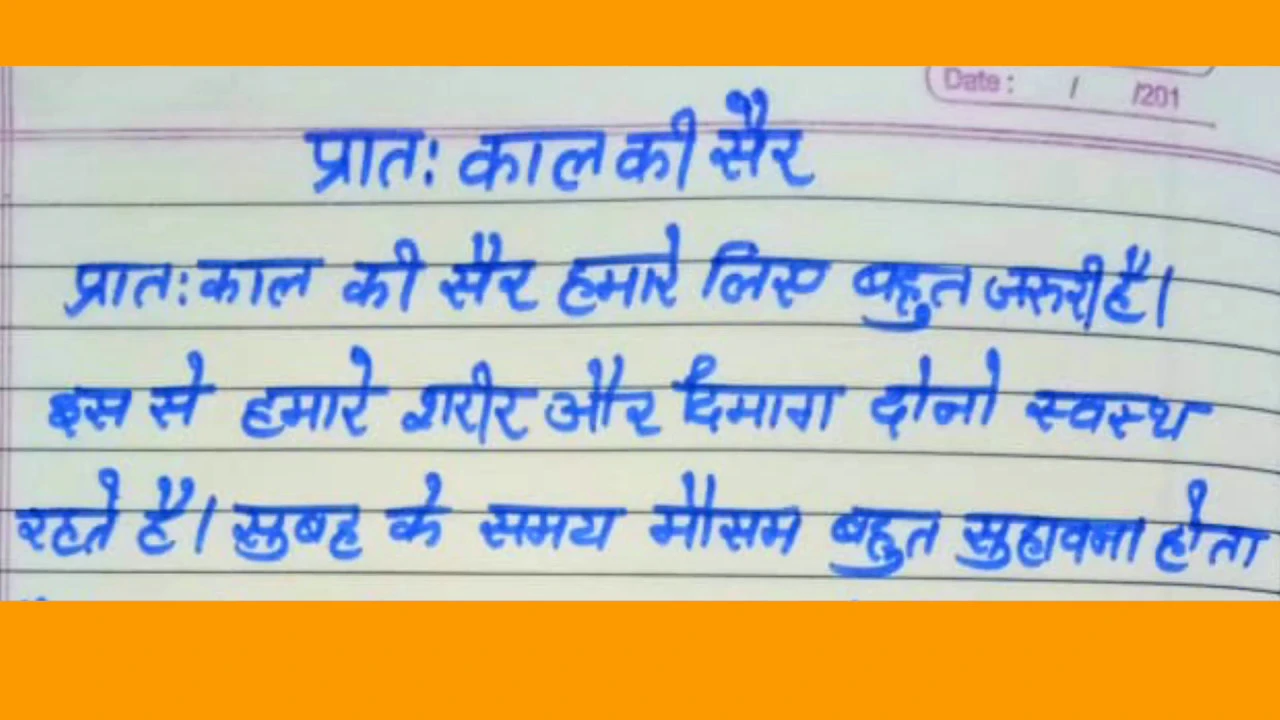 Date: / /201
प्रातः काल की सैर
प्रातःकाल की सैर हमारे लिए बहुत जरुरी है।
इस से हमारे शरीर और दिमाग दोनो स्वस्थ
रहते है। सुबह के समय मौसम बहुत सुहावना होता